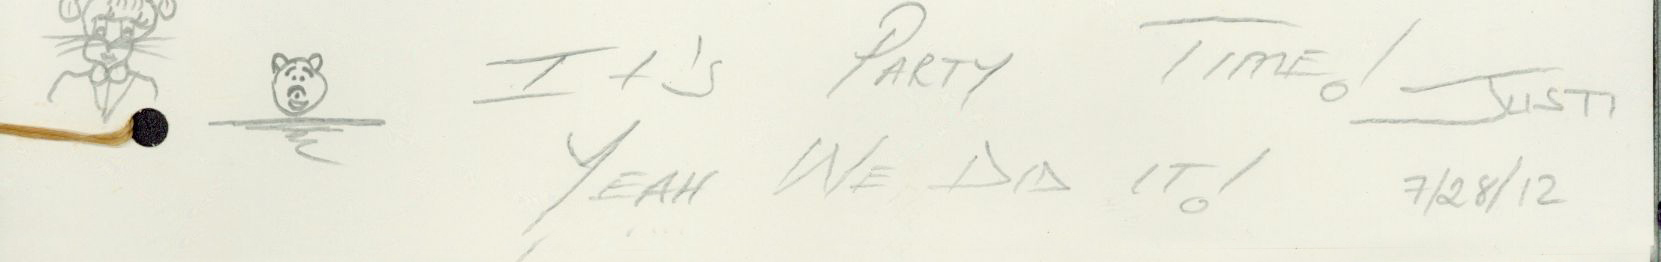 It's PARTY TIME! JUSTI
YEAH WE DID IT!
7/28/12